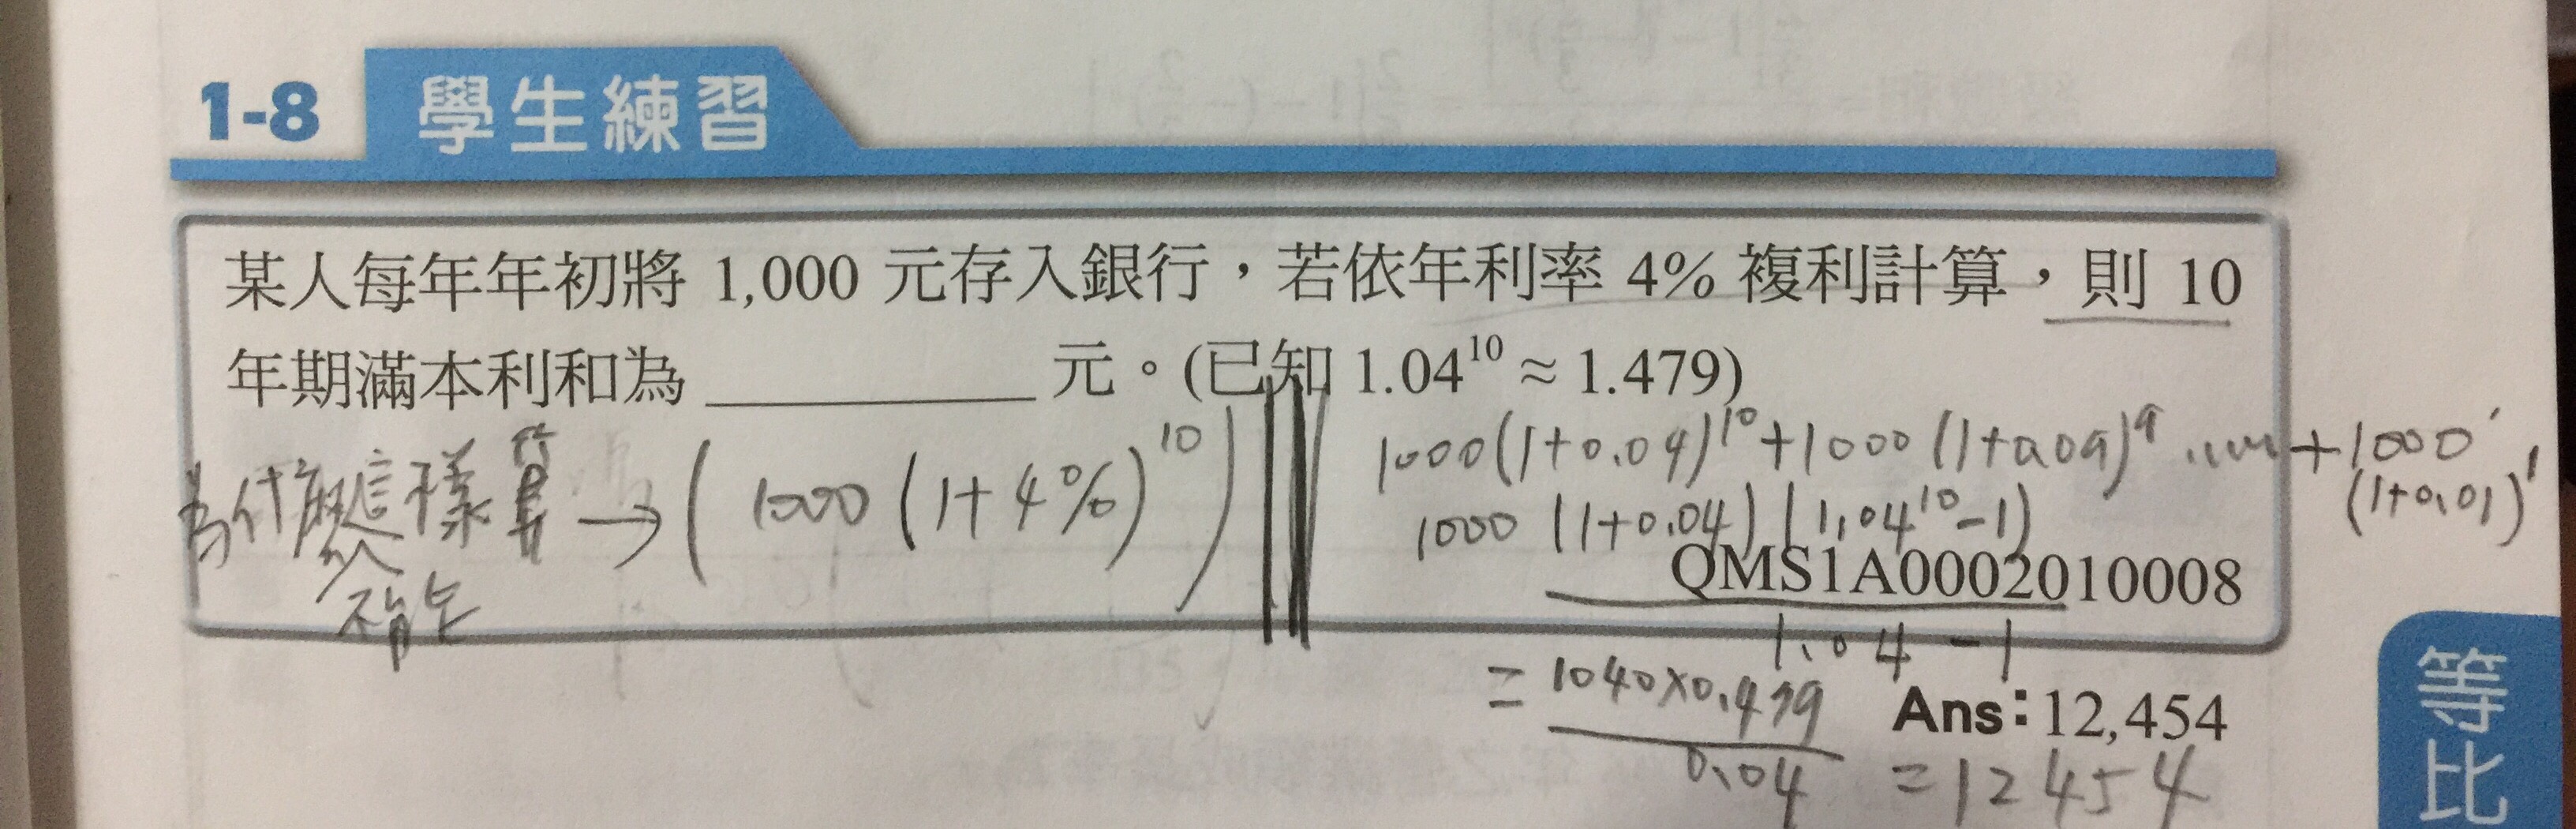 1-8 學生練習
某人每年年初將 1,000 元存入銀行，若依年利率 4% 複利計算，則 10
年期滿本利和為 ________ 元。(已知 1.04¹⁰ ≈ 1.479)
為什麼不能這樣算 → (1000 (1+4%)¹⁰)
1000(1+0.04)¹⁰+1000 (1+0.04)⁹ ...... +1000
(1+0.01)¹
1000 (1+0.04) (1.04¹⁰-1)
QMS1A0002010008
1.04 -1
= 1040×0.479
0.04
Ans：12,454
= 12454
等比